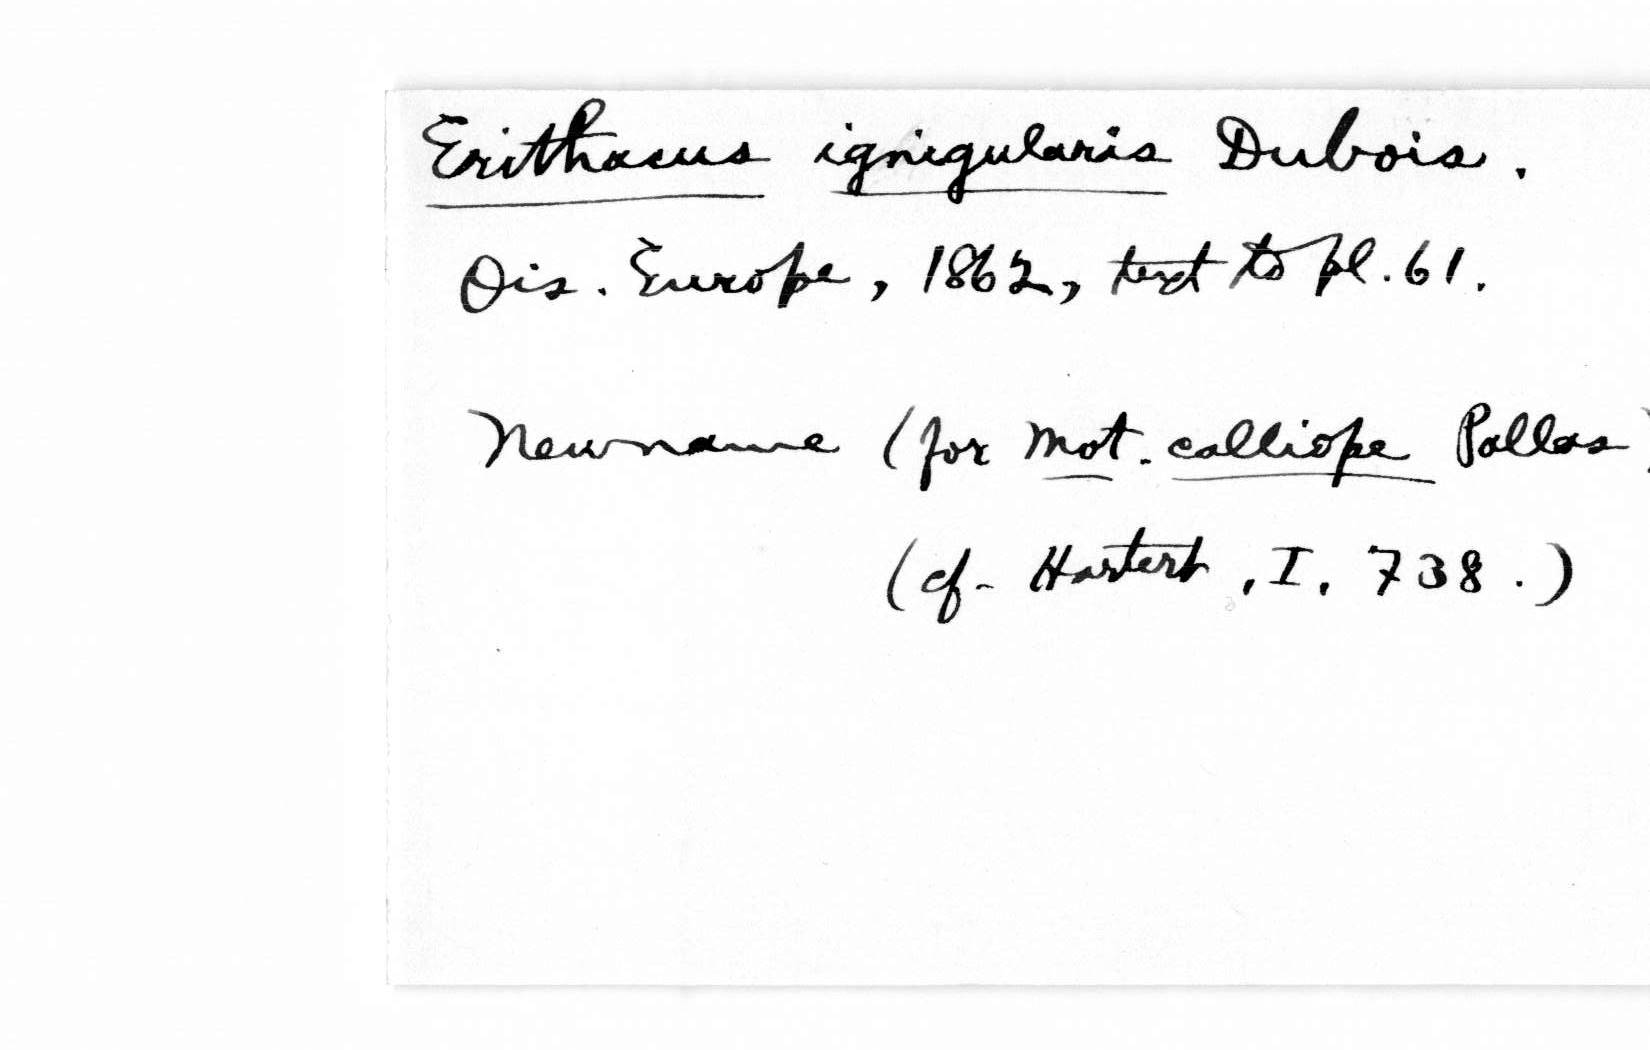 Erithacus ignigularis Dubois.
Ois. Europe, 1862, text to pl. 61.
New name (for Mot. calliope Pallas)
(cf. Hartert, I, 738.)